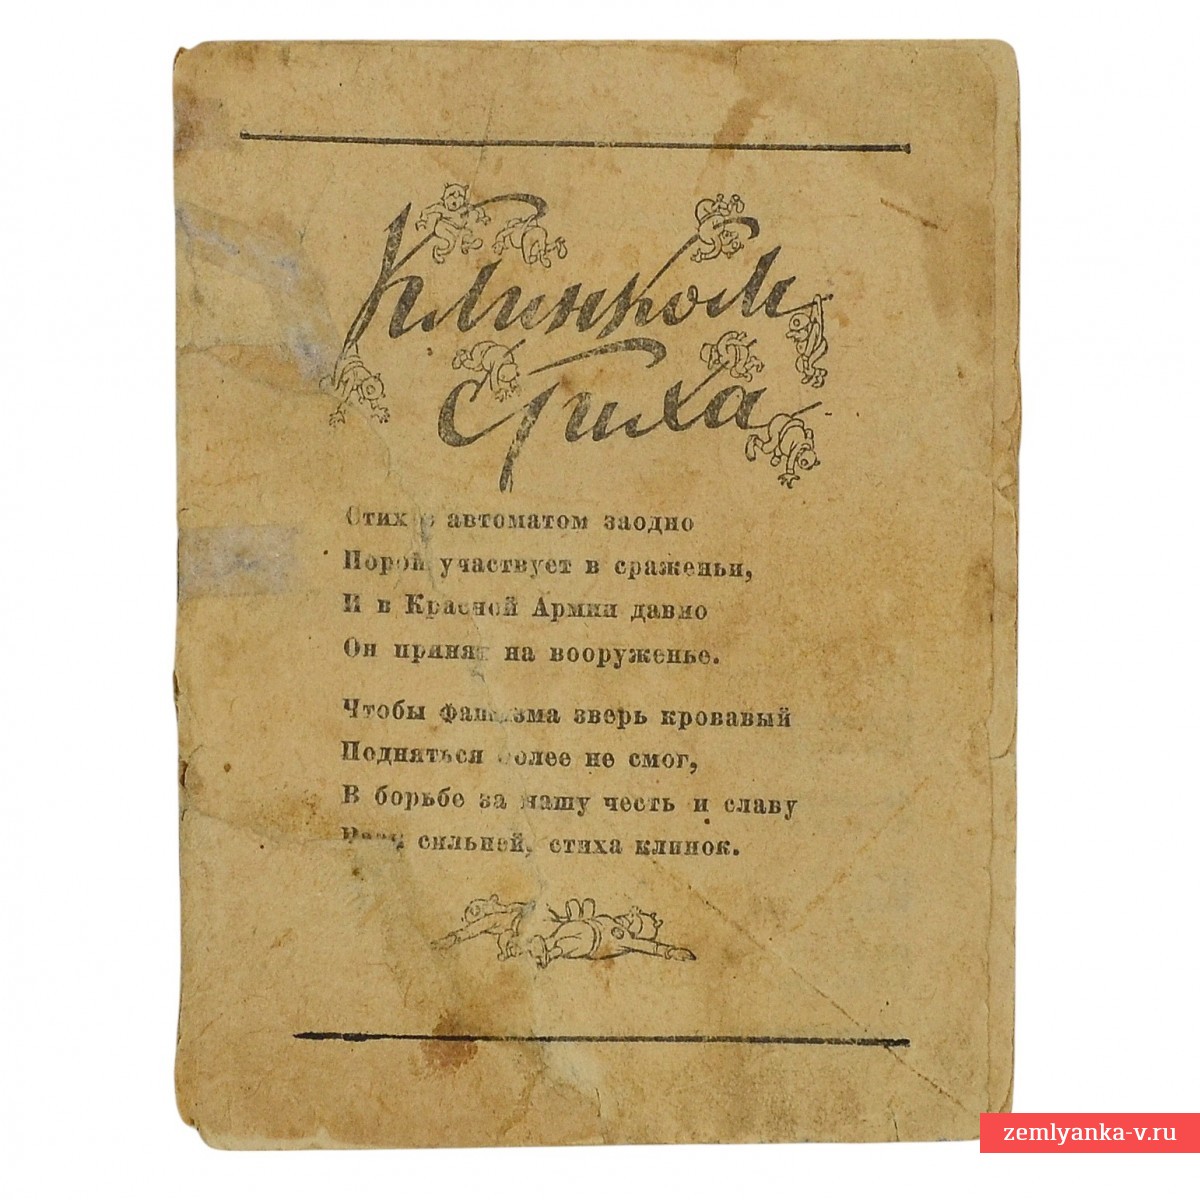 Клинком
стиха
Стих с автоматом заодно
Порой участвует в сраженьи,
И в Красной Армии давно
Он принят на вооруженье.
Чтобы фашизма зверь кровавый
Подняться более не смог,
В борьбе за нашу честь и славу
сильней, стиха клинок.
zemlyanka-v.ru